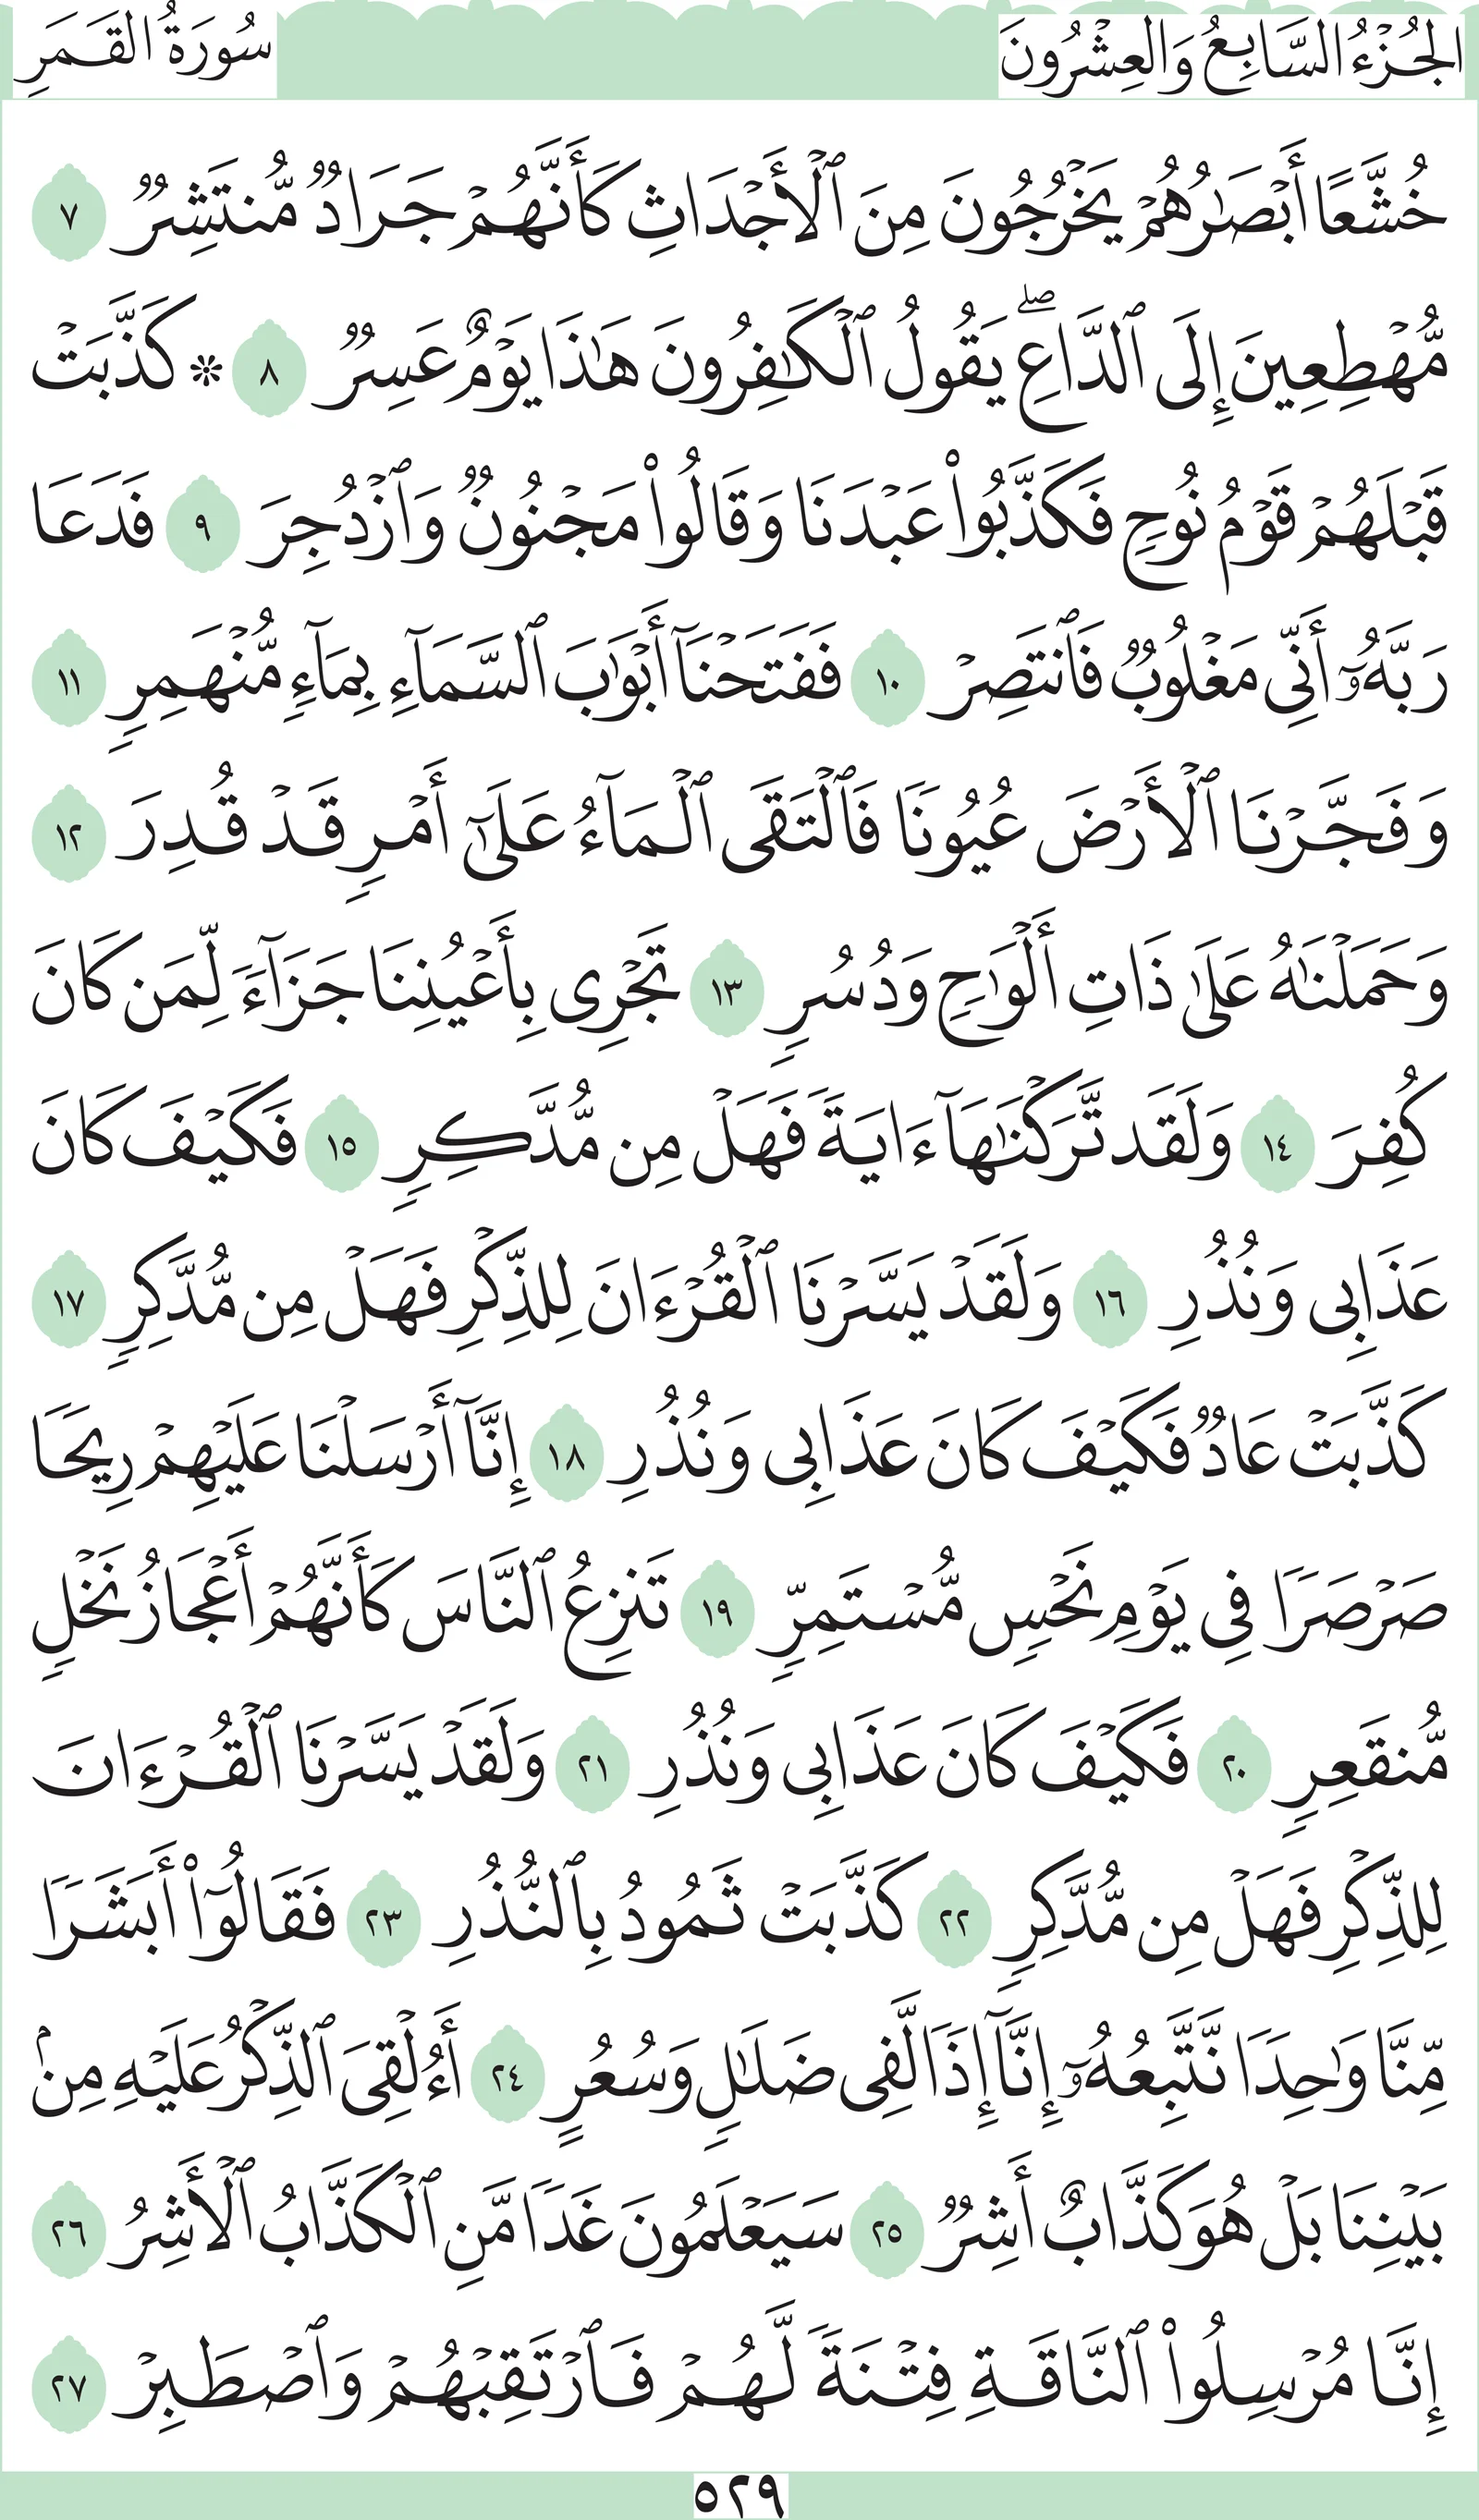 الجُزْءُ السَّابِعُ وَالعِشْرُونَ
سُورَةُ القَمَرِ
خُشَّعًا أَبْصَٰرُهُمْ يَخْرُجُونَ مِنَ ٱلْأَجْدَاثِ كَأَنَّهُمْ جَرَادٌ مُّنتَشِرٌ ٧
مُّهْطِعِينَ إِلَى ٱلدَّاعِ ۖ يَقُولُ ٱلْكَٰفِرُونَ هَٰذَا يَوْمٌ عَسِرٌ ٨ ۞ كَذَّبَتْ
قَبْلَهُمْ قَوْمُ نُوحٍ فَكَذَّبُوا۟ عَبْدَنَا وَقَالُوا۟ مَجْنُونٌ وَٱزْدُجِرَ ٩ فَدَعَا
رَبَّهُۥٓ أَنِّى مَغْلُوبٌ فَٱنتَصِرْ ١٠ فَفَتَحْنَآ أَبْوَٰبَ ٱلسَّمَآءِ بِمَآءٍ مُّنْهَمِرٍ ١١
وَفَجَّرْنَا ٱلْأَرْضَ عُيُونًا فَٱلْتَقَى ٱلْمَآءُ عَلَىٰٓ أَمْرٍ قَدْ قُدِرَ ١٢
وَحَمَلْنَٰهُ عَلَىٰ ذَاتِ أَلْوَٰحٍ وَدُسُرٍ ١٣ تَجْرِى بِأَعْيُنِنَا جَزَآءً لِّمَن كَانَ
كُفِرَ ١٤ وَلَقَد تَّرَكْنَٰهَآ ءَايَةً فَهَلْ مِن مُّدَّكِرٍ ١٥ فَكَيْفَ كَانَ
عَذَابِى وَنُذُرِ ١٦ وَلَقَدْ يَسَّرْنَا ٱلْقُرْءَانَ لِلذِّكْرِ فَهَلْ مِن مُّدَّكِرٍ ١٧
كَذَّبَتْ عَادٌ فَكَيْفَ كَانَ عَذَابِى وَنُذُرِ ١٨ إِنَّآ أَرْسَلْنَا عَلَيْهِمْ رِيحًا
صَرْصَرًا فِى يَوْمِ نَحْسٍ مُّسْتَمِرٍّ ١٩ تَنزِعُ ٱلنَّاسَ كَأَنَّهُمْ أَعْجَازُ نَخْلٍ
مُّنقَعِرٍ ٢٠ فَكَيْفَ كَانَ عَذَابِى وَنُذُرِ ٢١ وَلَقَدْ يَسَّرْنَا ٱلْقُرْءَانَ
لِلذِّكْرِ فَهَلْ مِن مُّدَّكِرٍ ٢٢ كَذَّبَتْ ثَمُودُ بِٱلنُّذُرِ ٢٣ فَقَالُوٓا۟ أَبَشَرًا
مِّنَّا وَٰحِدًا نَّتَّبِعُهُۥٓ إِنَّآ إِذًا لَّفِى ضَلَٰلٍ وَسُعُرٍ ٢٤ أَءُلْقِىَ ٱلذِّكْرُ عَلَيْهِ مِنۢ
بَيْنِنَا بَلْ هُوَ كَذَّابٌ أَشِرٌ ٢٥ سَيَعْلَمُونَ غَدًا مَّنِ ٱلْكَذَّابُ ٱلْأَشِرُ ٢٦
إِنَّا مُرْسِلُوا۟ ٱلنَّاقَةِ فِتْنَةً لَّهُمْ فَٱرْتَقِبْهُمْ وَٱصْطَبِرْ ٢٧
٥٢٩